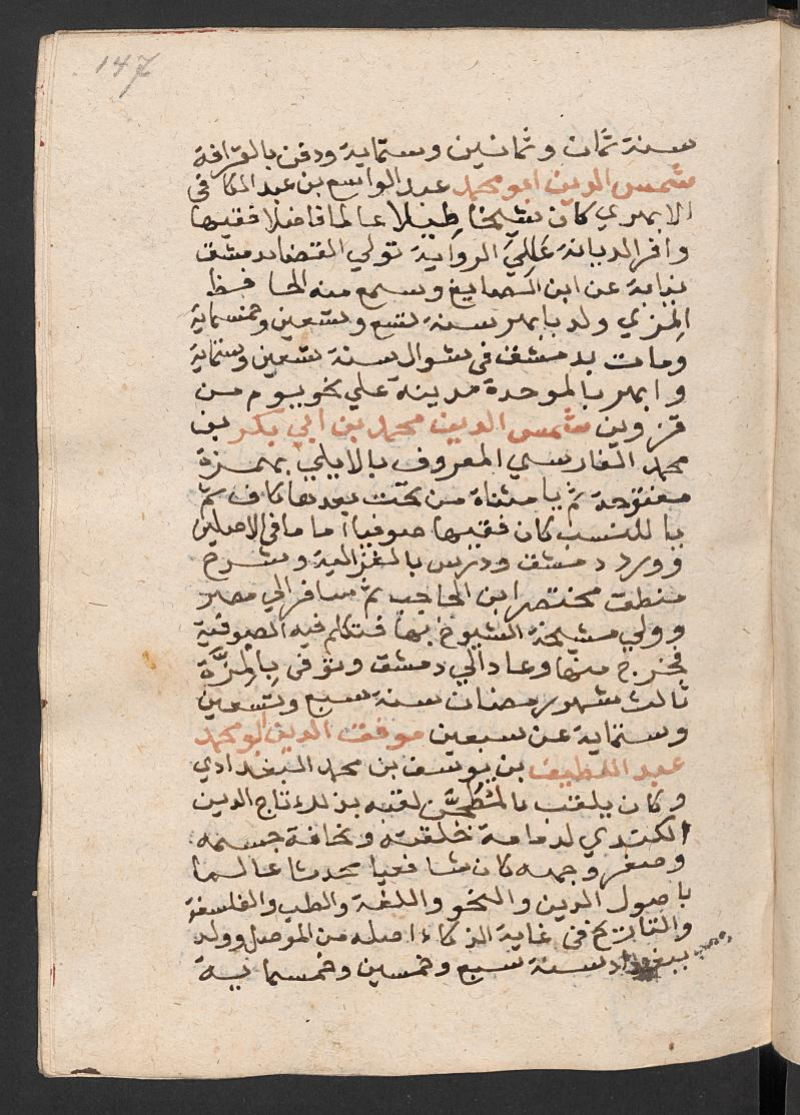 147
سنة ثمان وثمانين وستماية ودفن بالقرافة
شمس الدين ابو محمد عبد الواسع بن عبد الكافي
الابهري كان شيخا جليلا عالما فاضلا فقيها
وافر الديانة عَالِيَ الرواية تولي القضا بدمشق
نيابة عن ابن الصايغ وسمع منه الحافظ
المزي ولد بابهر سنة تسع وتسعين وخمسماية
ومات بدمشق في شوال سنة تسعين وستماية
وابهر بالموحدة مدينة علي نحو يوم من
قزوين شمس الدين محمد بن ابي بكر بن
محمد الفارسي المعروف بالايلي بهمزة
مفتوحة ثم يا مثناة من تحت بعدها كاف ثم
يا للنسب كان فقيها صوفيا اماما في الاصلين
وورد دمشق ودرس بالغزالية وشرح
منطق مختصر ابن الحاجب ثم سافر الي مصر
وولي مشيخة الشيوخ بها فتكلم فيه الصوفية
فخرج منها وعاد الي دمشق وتوفي بِالمِزَّة
ثالث شهر رمضان سنة سبع وتسعين
وستماية عن سبعين موفق الدين ابو محمد
عبد اللطيف بن يوسف بن محمد البغدادي
وكان يلقب بالمُطَحَّن لقبه بذلك تاج الدين
الكندي لدمامة خلقته ونحافة جسمه
وصغر وجهه كان شافعيا محدثا عالما
باصول الدين والنحو واللغة والطب والفلسفة
والتاريخ في غاية الذكاء اصله من الموصل وولد
ببغداد سنة سبع وخمسين وخمسماية